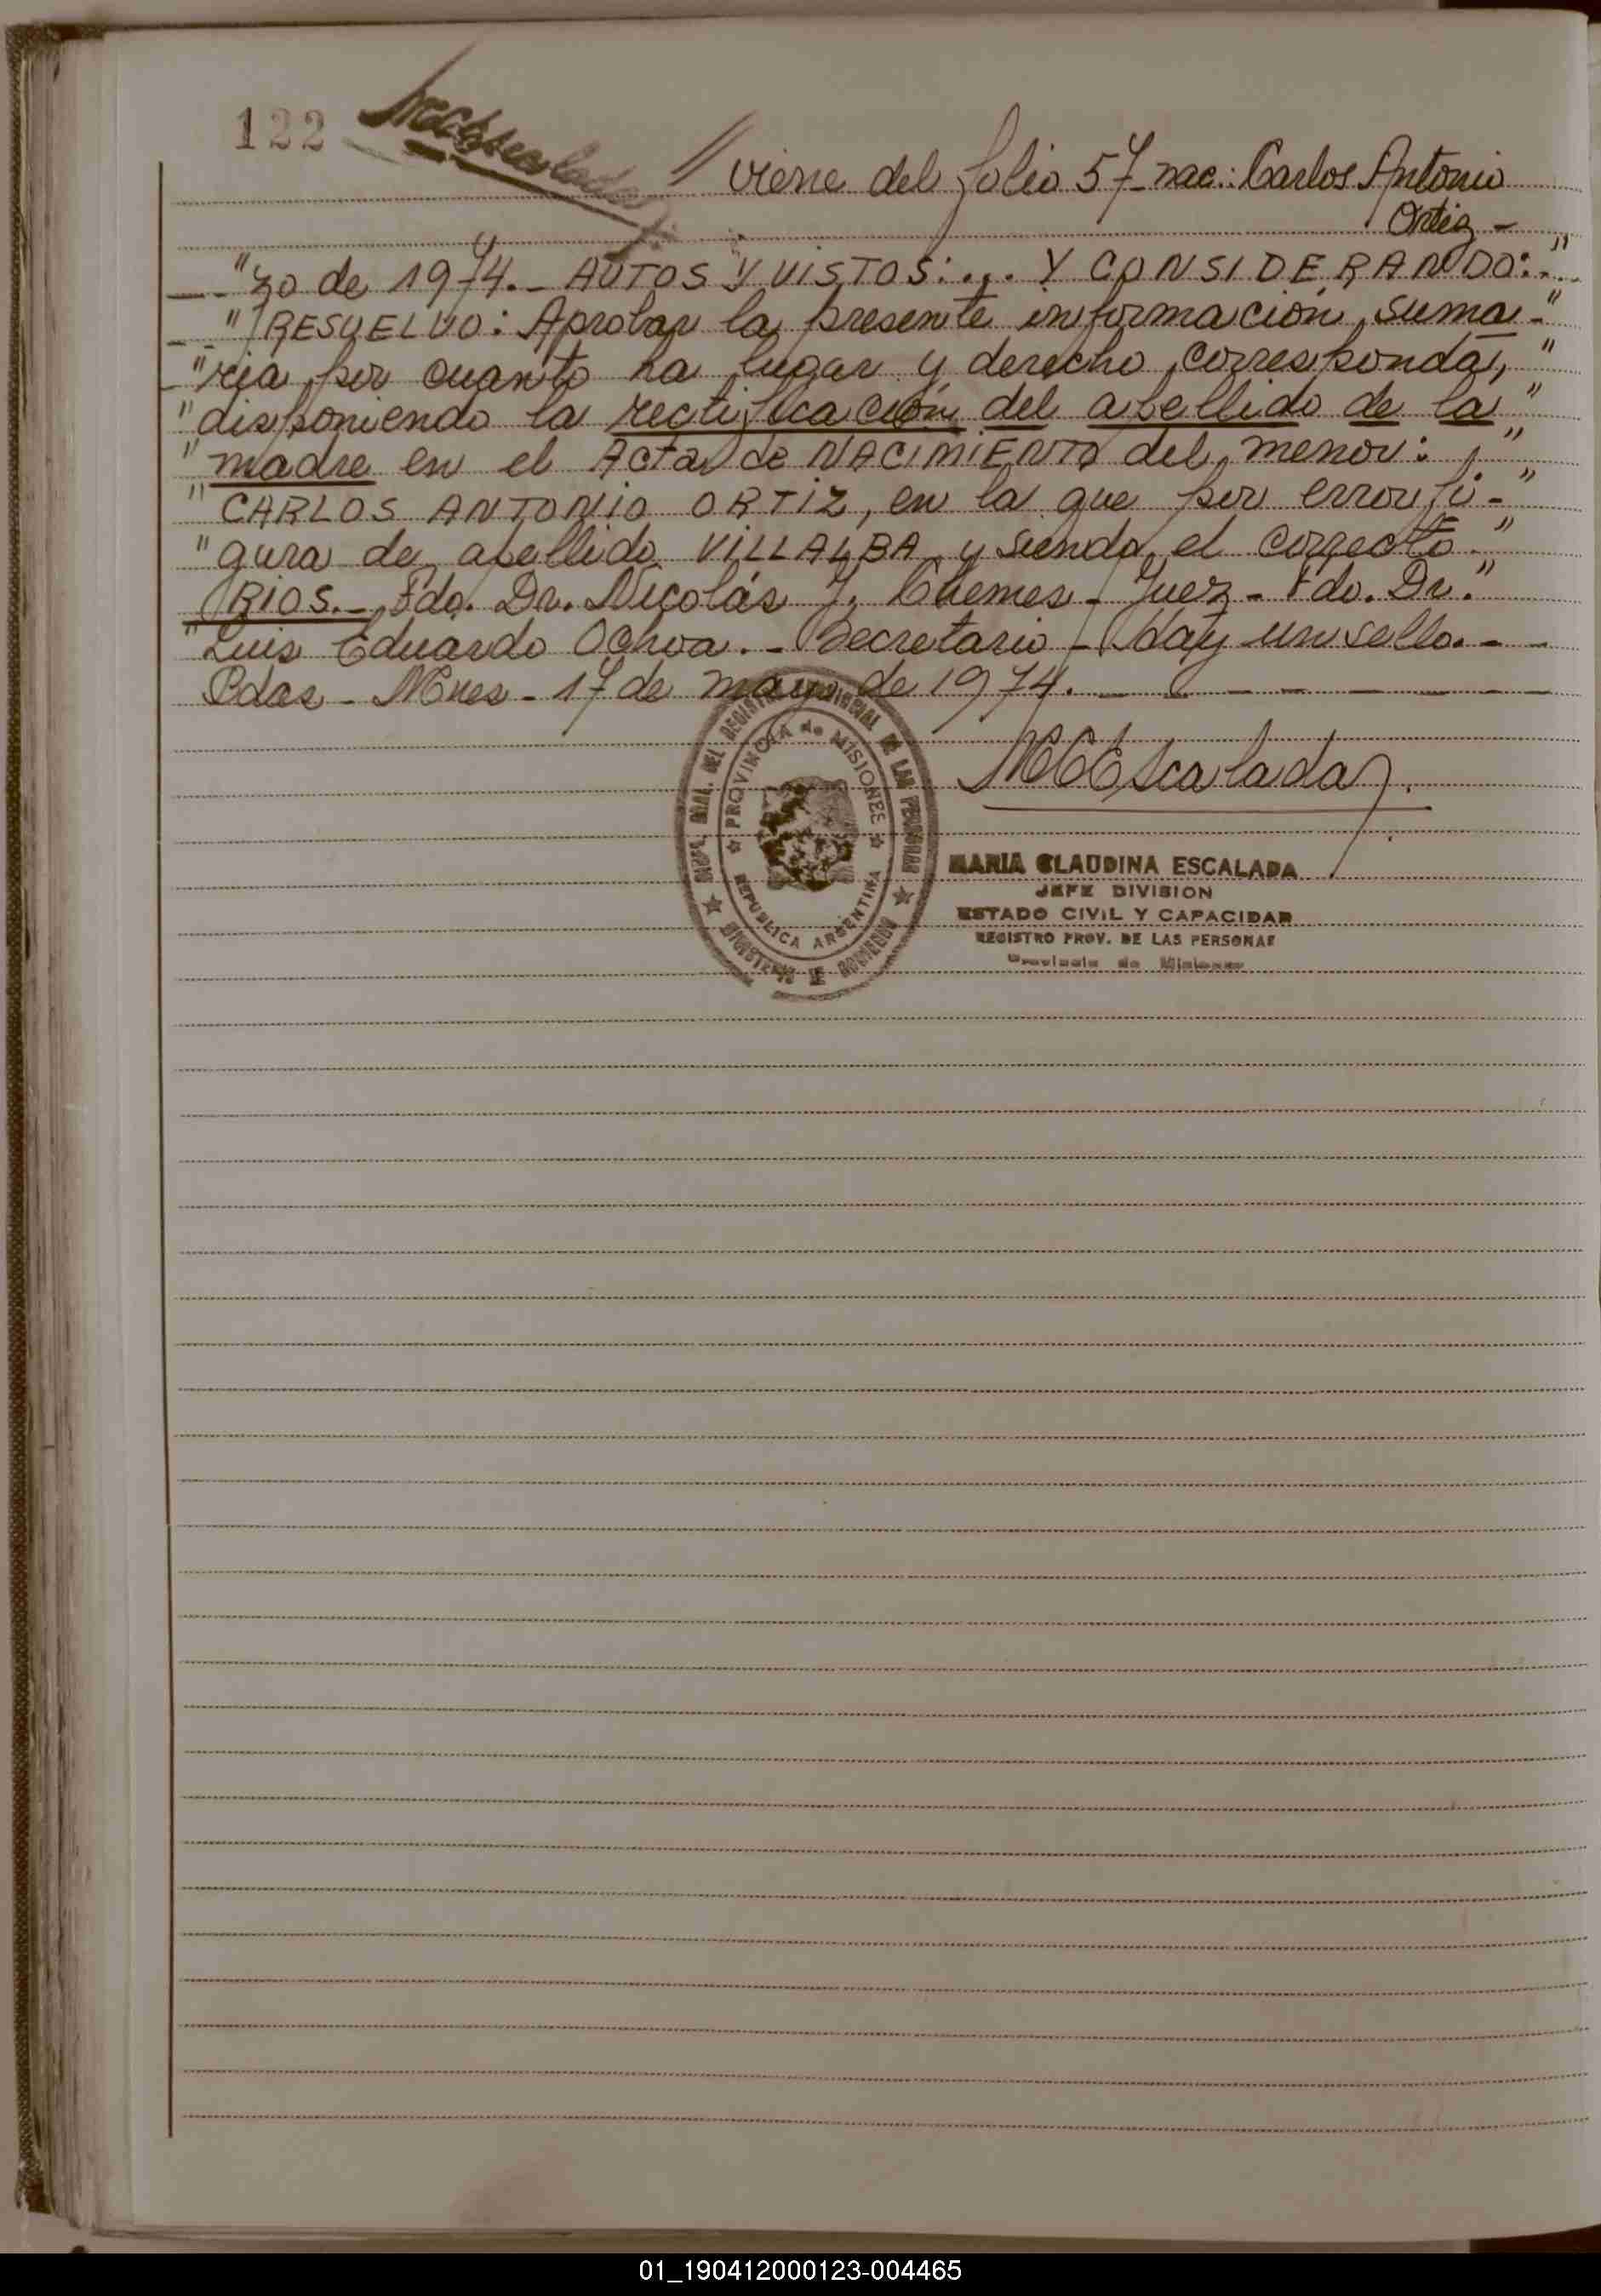 122
// viene del folio 57- nac.: Carlos Antonio
Ortiz -
"zo de 1974.- AUTOS Y VISTOS:... Y CONSIDERANDO:-"
"RESUELVO: Aprobar la presente información suma-"
"ria por cuanto ha lugar y derecho corresponda,"
"disponiendo la rectificación del apellido de la"
"madre en el Acta de NACIMIENTO del menor:"
"CARLOS ANTONIO ORTIZ, en la que por error fi-"
"gura de apellido VILLALBA y siendo el correcto"
RIOS.- Fdo. Dr. Nicolás J. Chemes - Juez - Fdo. Dr."
"Luis Eduardo Ochoa.- Secretario - Hay un sello.- -
Pdas - Mnes - 17 de mayo de 1974. - - - - - -
MCEscalada
MARIA CLAUDINA ESCALADA
JEFE DIVISION
ESTADO CIVIL Y CAPACIDAD
REGISTRO PROV. DE LAS PERSONAS
Provincia de Misiones
PROVINCIA de MISIONES
REPUBLICA ARGENTINA
GRAL. DEL REGISTRO PROVINCIAL DE LAS PERSONAS
MINISTERIO DE GOBIERNO
01_190412000123-004465